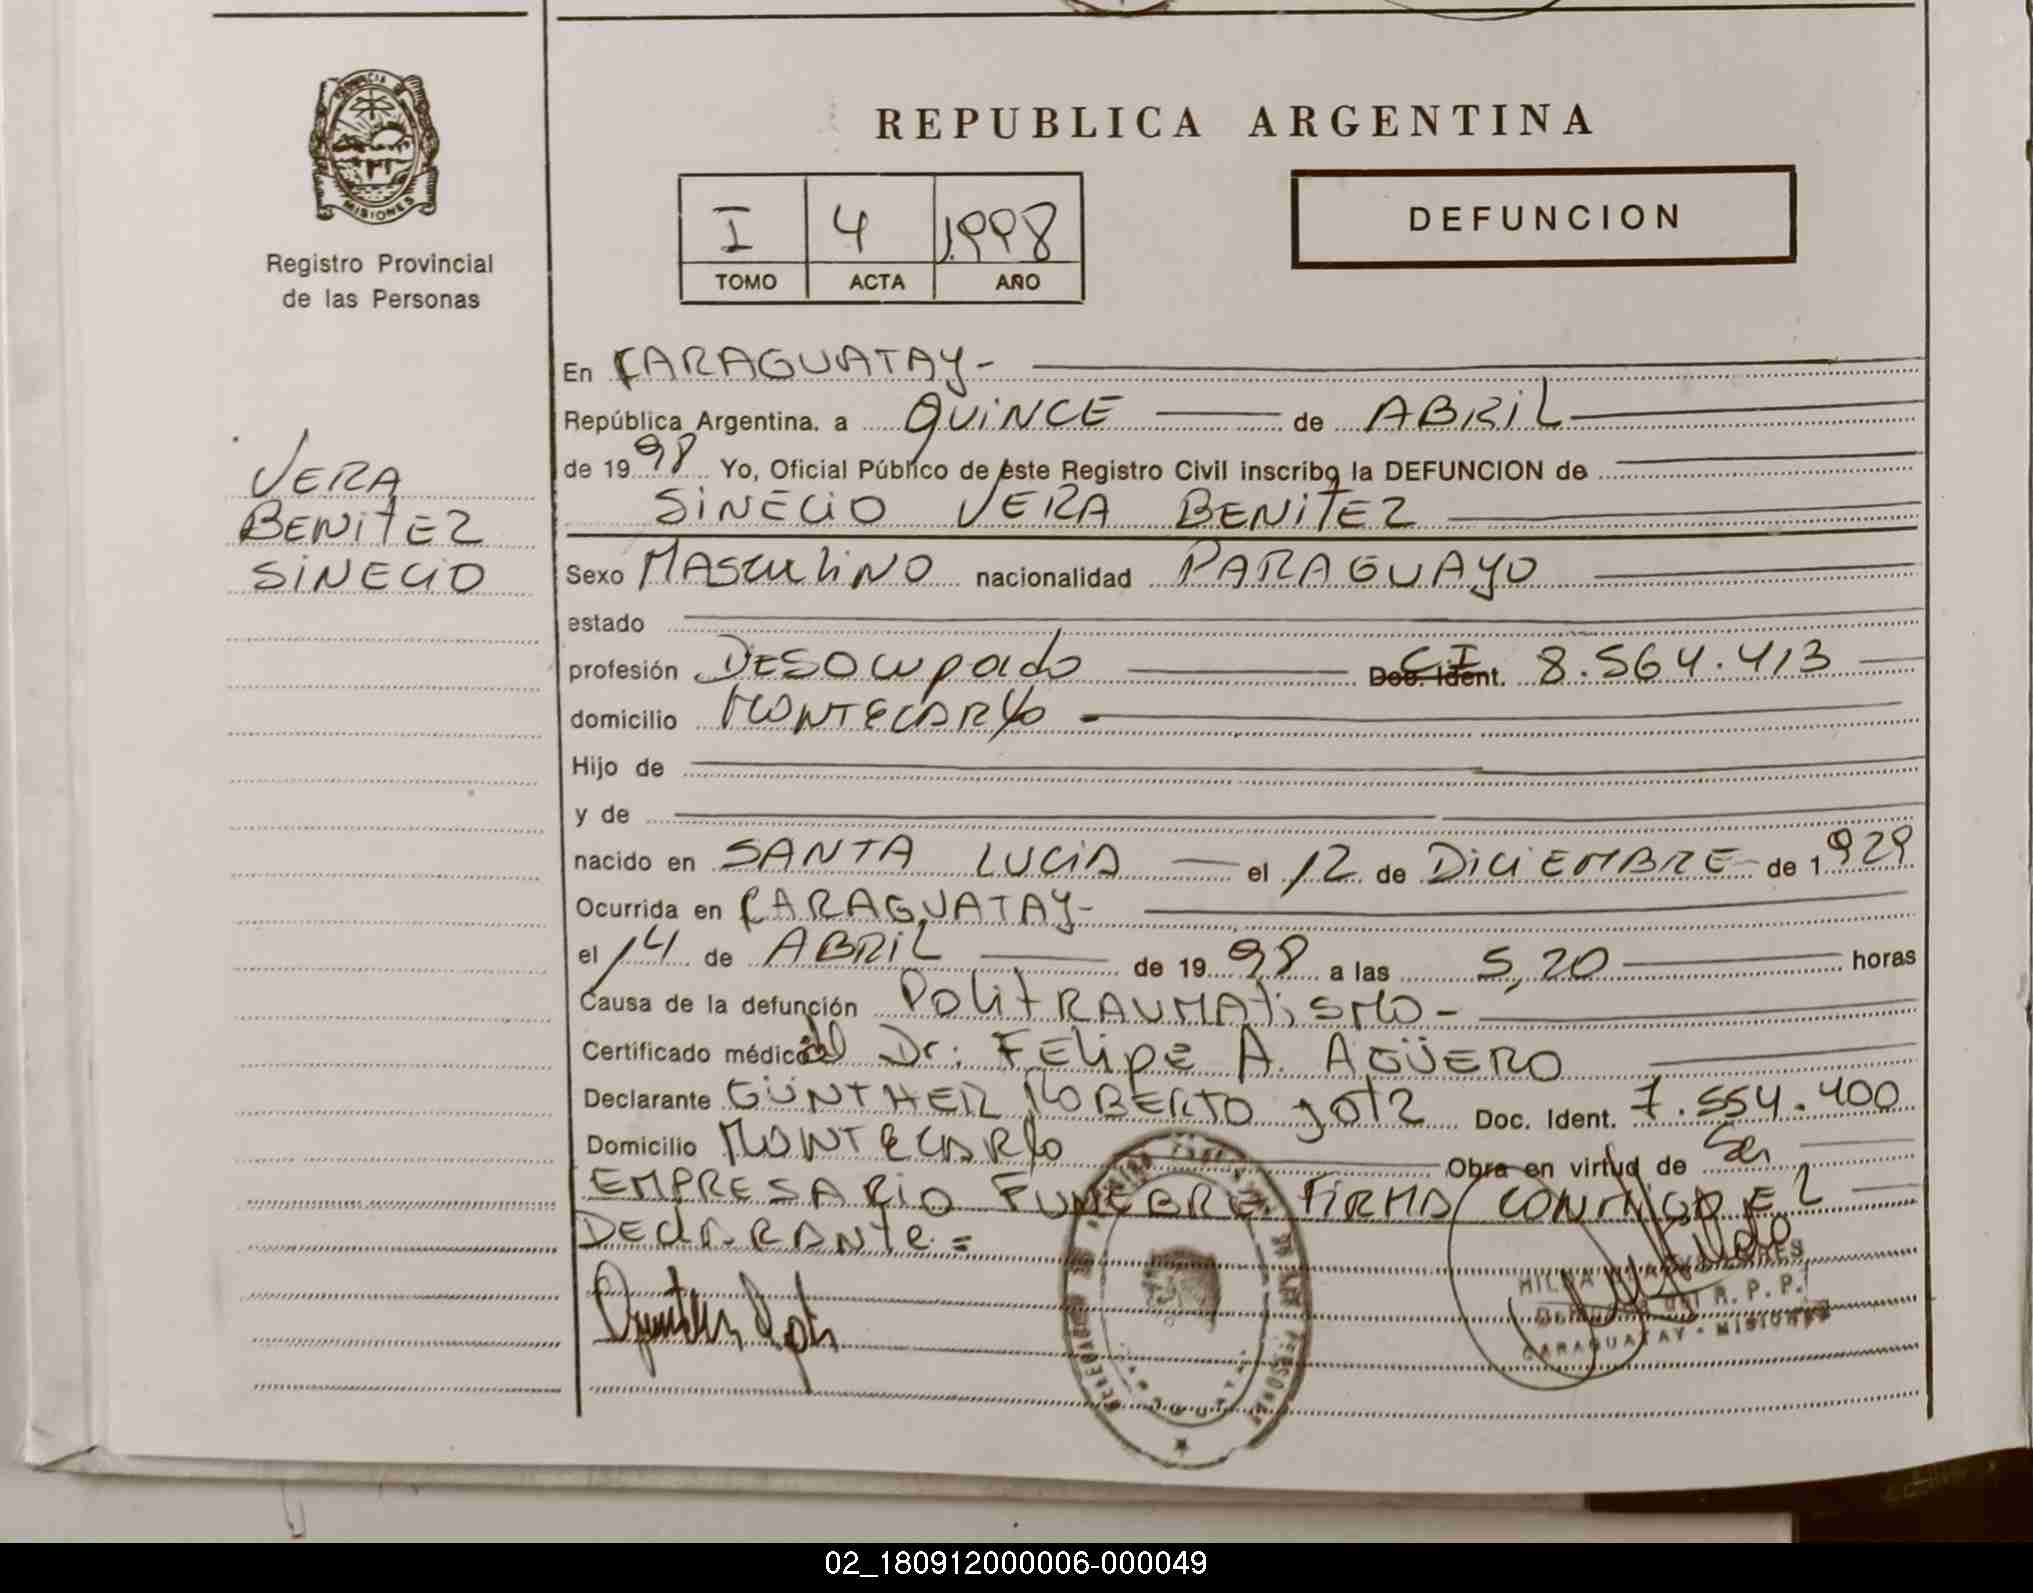 PROVINCIA
MISIONES
Registro Provincial
de las Personas
VERA
BENITEZ
SINECIO
REPUBLICA ARGENTINA
I 4 1.998
TOMO ACTA AÑO
DEFUNCION
En CARAGUATAY-
República Argentina. a QUINCE de ABRIL
de 19 98 Yo, Oficial Público de este Registro Civil inscribo la DEFUNCION de
SINECIO VERA BENITEZ
Sexo MASCULINO nacionalidad PARAGUAYO
estado
profesión DESOCUPADO Doc. Ident. CI 8.564.413
domicilio MONTECARLO -
Hijo de
y de
nacido en SANTA LUCIA el 12 de DICIEMBRE de 1 929
Ocurrida en CARAGUATAY-
el 14 de ABRIL de 19 98 a las 5,20 horas
Causa de la defunción POLITRAUMATISMO -
Certificado médico del Dr: FELIPE A. AGÜERO
Declarante GÜNTHER ROBERTO GOTZ Doc. Ident. 7.554.400
Domicilio MONTECARLO Obra en virtud de Ser
EMPRESARIO FUNEBRE FIRMA CONMIGO EL
DECLARANTE =
R. P. P.
CARAGUATAY - MISIONES
02_180912000006-000049